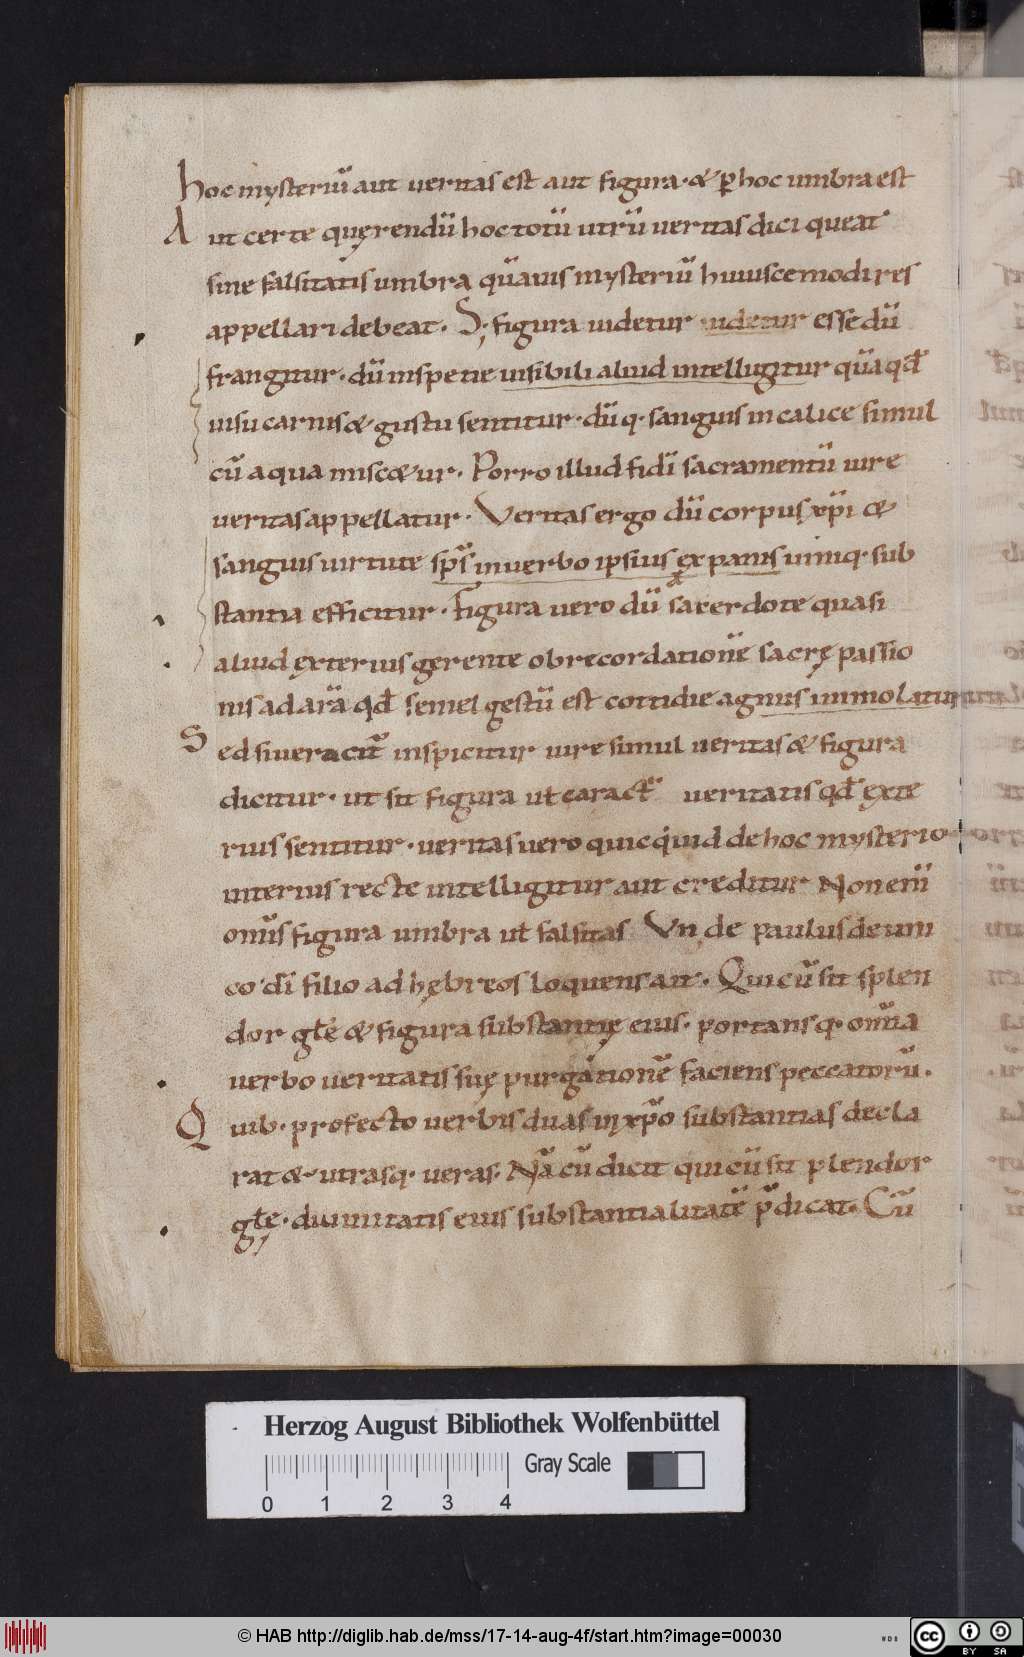 hoc mysteriū aut ueritas est aut figura · & ꝑ hoc umbra est
Aut certe quęrendū hoc totū utrū ueritas dici queat
sine falsitatis umbra quāuis mysteriū huiuscemodi res
appellari debeat · S; figura uidetur uidetur esse dū
frangitur · dū in specie uisibili aliud intelligitur quā qđ
uisu carnis & gustu sentitur · dūq · sanguis in calice simul
cū aqua misc&ur · Porro illud fidī sacramentū iure
ueritas appellatur · Veritas ergo dū corpus xp̄i &
sanguis uirtute sp̄s in uerbo ipsius ex panis uiniq · sub
stantia efficitur · Figura uero dū sacerdote quasi
aliud exterius gerente ob recordationē sacrę passio
nis ad arā qđ semel gestū est cottidie agnus immolatur
Sed si ueracit̄ inspicitur iure simul ueritas & figura
dicitur · ut sit figura uł caract̄ ueritatis qđ exte
rius sentitur · ueritas uero quicquid de hoc mysterio
interius recte intelligitur aut creditur Non enī
omīs figura umbra uł falsitas Vnde paulus de uni
co dī filio ad hebreos loquens ait · Qui cū sit splen
dor głe & figura substantię eius · portansq · omīa
uerbo ueritatis suę purgationē faciens peccatorū ·
Quib · profecto uerbis duas in xp̄o substantias decla
rat & utrasq · ueras · Nā cū dicit qui cū sit plendor
głę · diuinitatis eius substantialitatē p̄dicat · Cū
Herzog August Bibliothek Wolfenbüttel
Gray Scale
0 1 2 3 4
© HAB http://diglib.hab.de/mss/17-14-aug-4f/start.htm?image=00030
WDB
CC BY SA